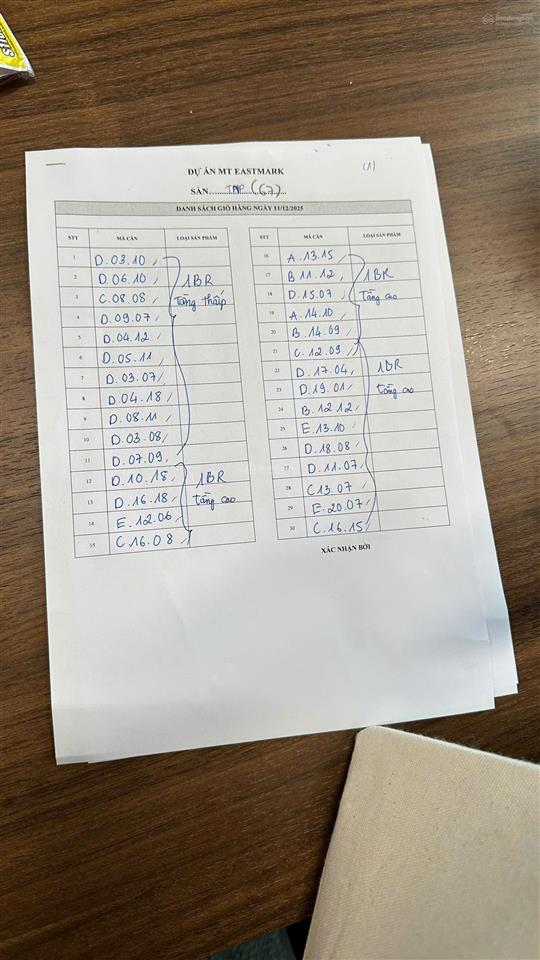 DỰ ÁN MT EASTMARK
(1)
SÀN......TNP (67)......
DANH SÁCH GIỎ HÀNG NGÀY 11/12/2025
STT MÃ CĂN LOẠI SẢN PHẨM
1 D.03.10
2 D.06.10
3 C.08.08
4 D.09.07
5 D.04.12
6 D.05.11
7 D.03.07
8 D.04.18
9 D.08.11
10 D.03.08
11 D.07.09
1BR
Tầng thấp
12 D.10.18
13 D.16.18
14 E.12.06
15 C.16.08
1BR
tầng cao
STT MÃ CĂN LOẠI SẢN PHẨM
16 A.13.15
17 B.11.12
18 D.15.07
19 A.14.10
20 B.14.09
1BR
Tầng cao
21 C.12.09
22 D.17.04
23 D.19.01
24 B.12.12
25 E.13.10
26 D.18.08
27 D.11.07
28 C13.07
29 E.20.07
30 C.16.15
1BR
tầng cao
XÁC NHẬN BỞI